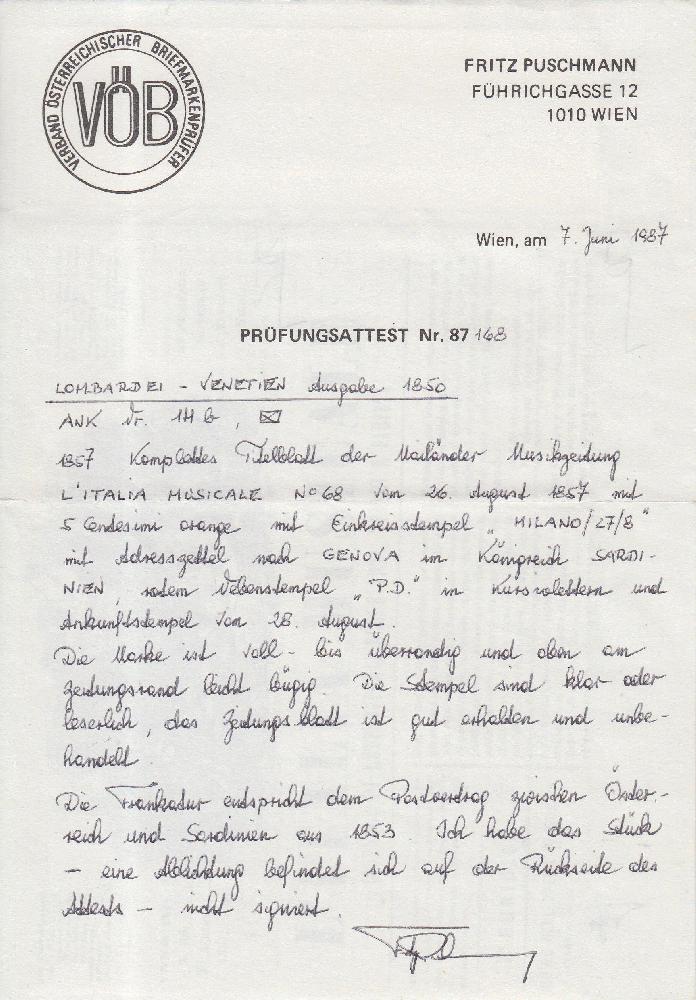 VERBAND ÖSTERREICHISCHER BRIEFMARKENPRÜFER
VÖB
FRITZ PUSCHMANN
FÜHRICHGASSE 12
1010 WIEN
Wien, am 7. Juni 1987
PRÜFUNGSATTEST Nr. 87 168
LOMBARDEI - VENETIEN Ausgabe 1850
ANK Nr. 1H b, ✉
1857 Komplettes Titelblatt der Mailänder Musikzeitung
L'ITALIA MUSICALE No 68 vom 26. August 1857 mit
5 Centesimi orange mit Einkreisstempel „MILANO/27/8"
mit Adresszettel nach GENOVA im Königreich SARDI-
NIEN, rotem Nebenstempel „P.D." in Kursivlettern und
Ankunftstempel vom 28. August.
Die Marke ist voll- bis überrandig und oben am
Zeitungsrand leicht bügig. Die Stempel sind klar oder
leserlich, das Zeitungsblatt ist gut erhalten und unbe-
handelt.
Die Frankatur entspricht dem Postvertrag zwischen Öster-
reich und Sardinien aus 1853. Ich habe das Stück
- eine Ablichtung befindet sich auf der Rückseite des
Attests - nicht signiert.